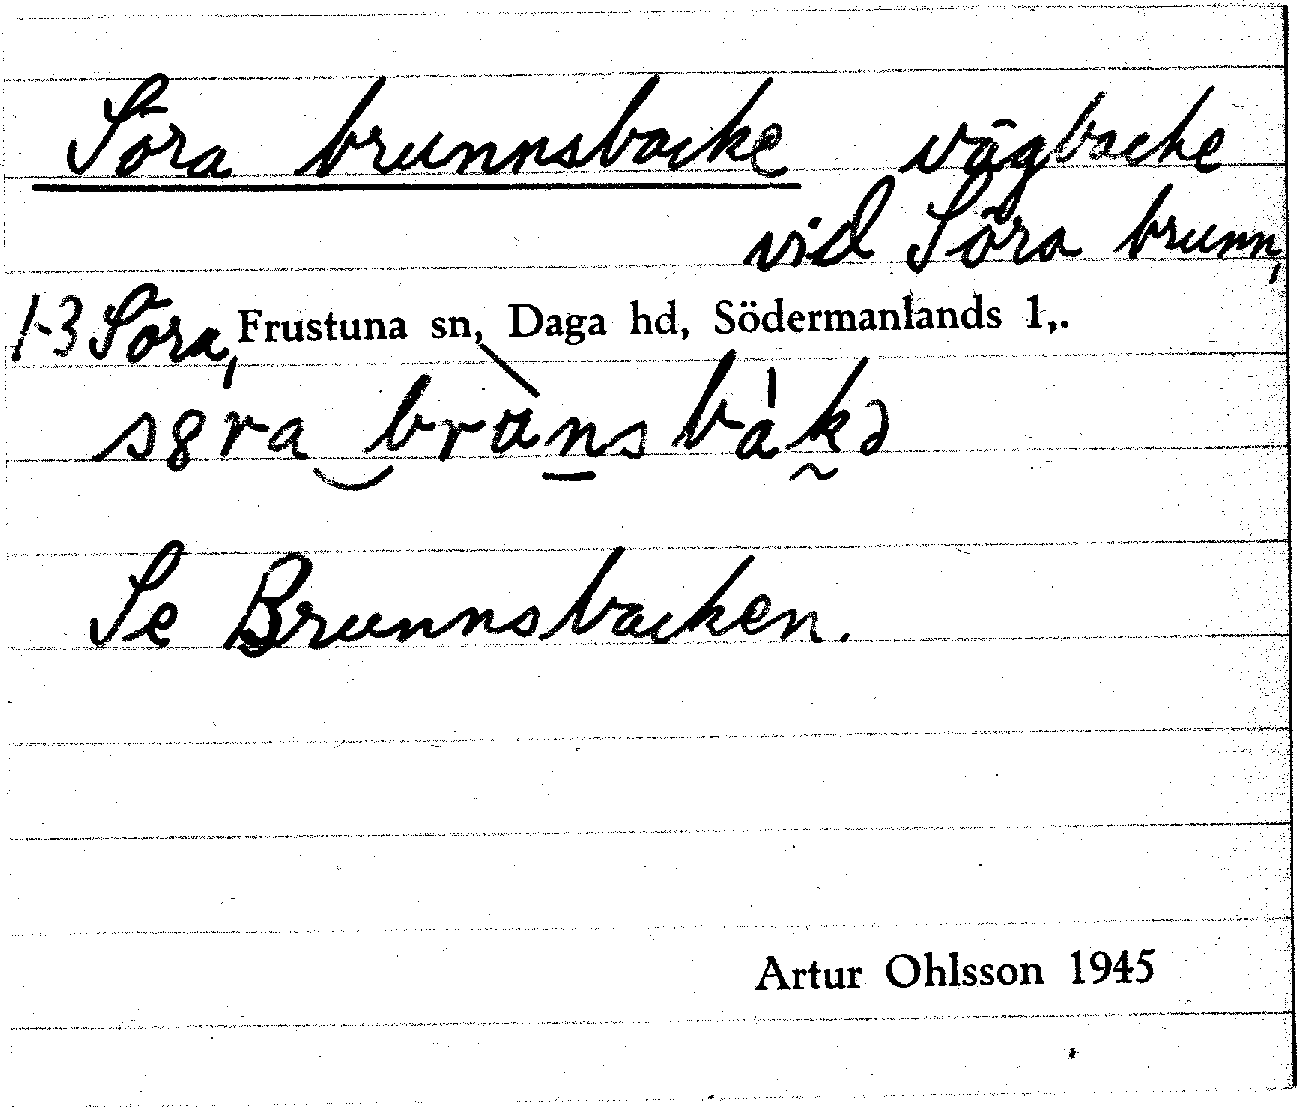 Söra brunnsbacke vägbacke
vid Söra brunn,
1-3 Söra, Frustuna sn, Daga hd, Södermanlands l,.
Se Brunnsbacken.
Artur Ohlsson 1945